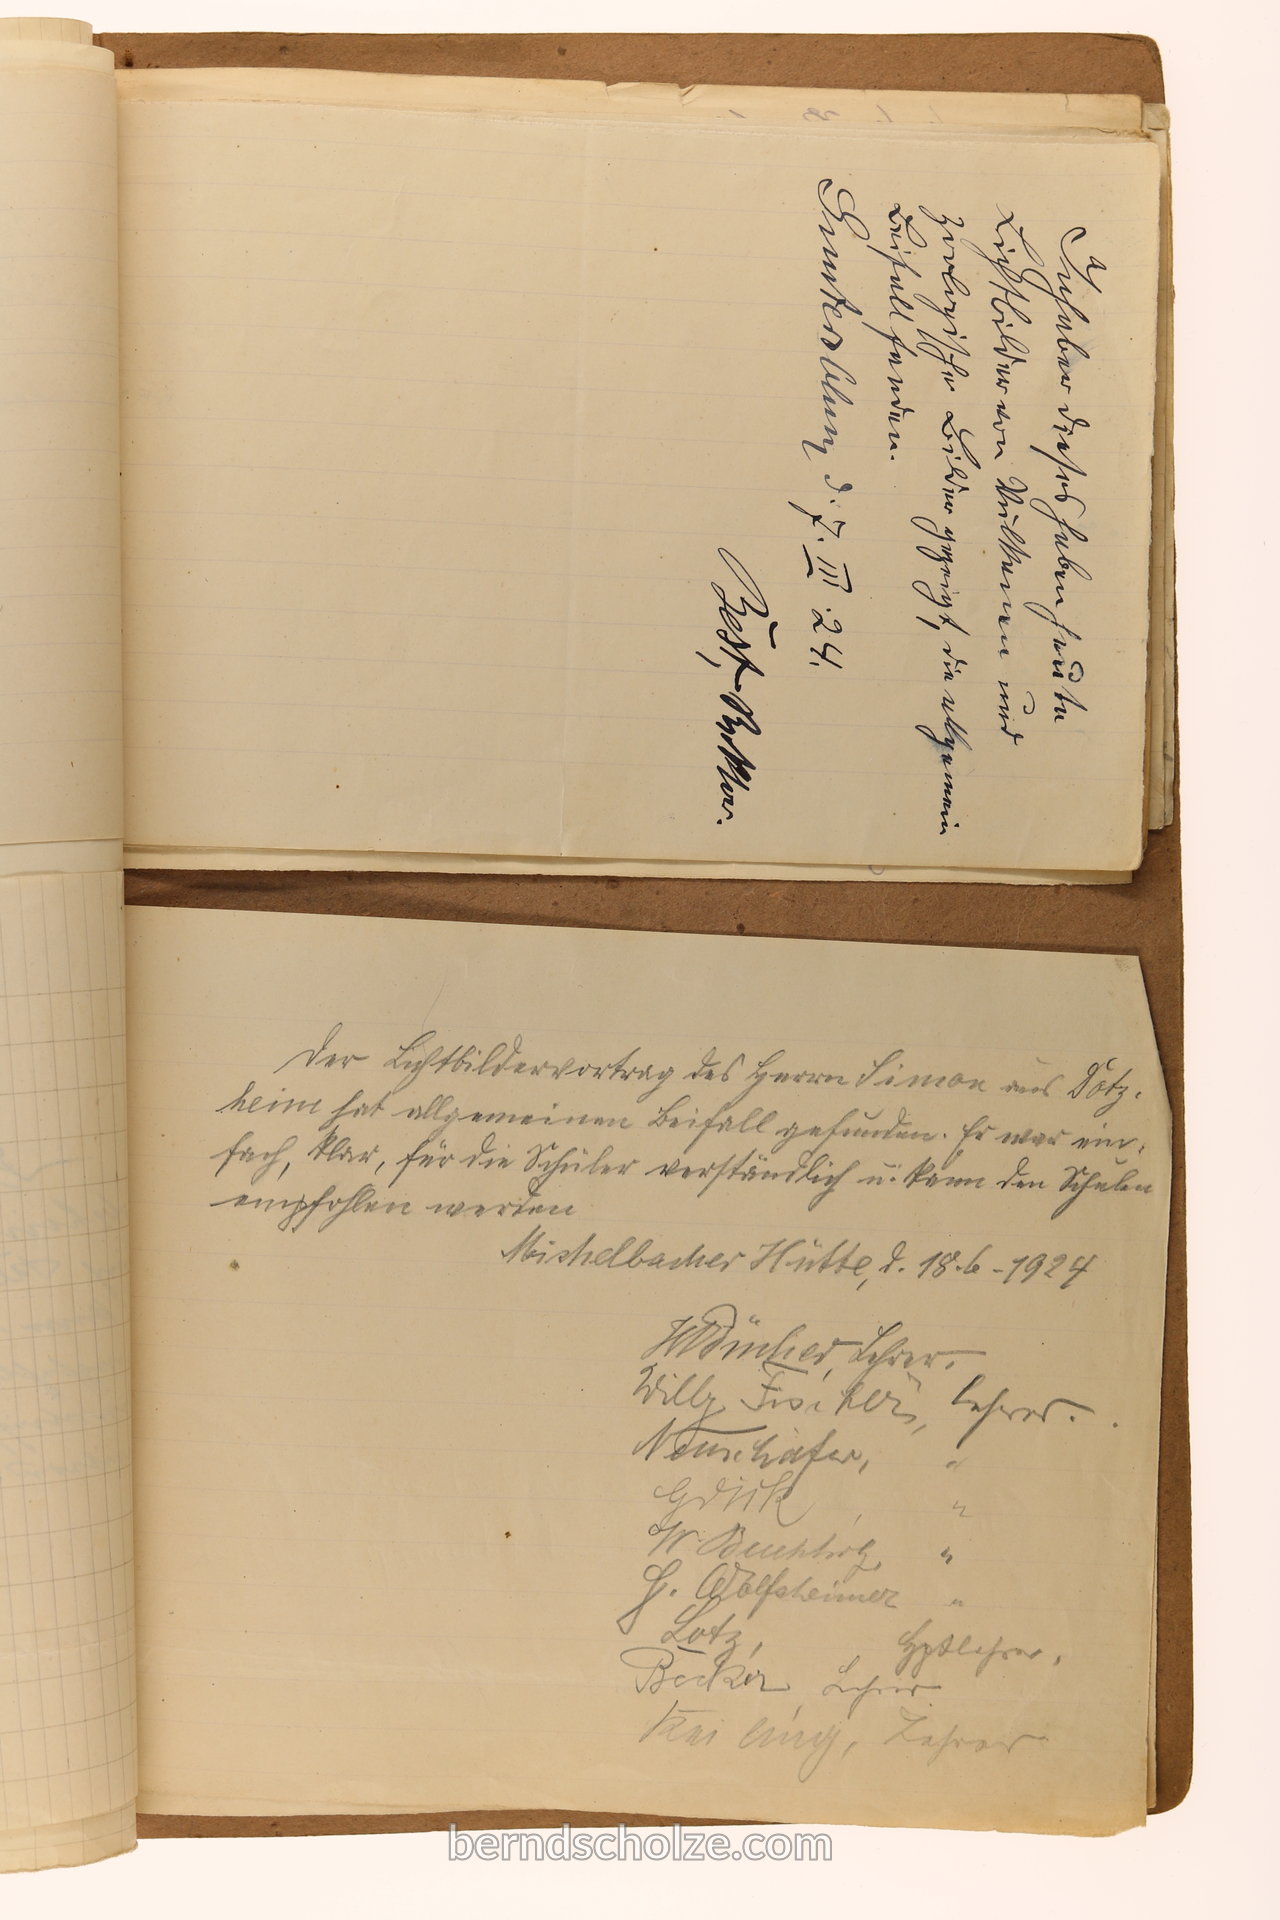 Inhaber dieses haben heute
Lichtbilder von Vulkanen und
zoologische Bilder gezeigt, die allgemein
Beifall fanden.
d. 7. III 24.
Best, Rektor.
Der Lichtbildervortrag des Herrn Simon aus Dotz-
heim hat allgemeinen Beifall gefunden. Er war ein-
fach, klar, für die Schüler verständlich u. kann den Schulen
empfohlen werden
Michelbacher Hütte, d. 18.6-1924
Lehrer.
Willy Fischer, Lehrer.
Neuschäfer, "
"
W. Buchholz, "
H. Wolfsheimer "
Lotz, Hptlehrer,
Becker Lehrer
Keiling, Lehrer
berndscholze.com